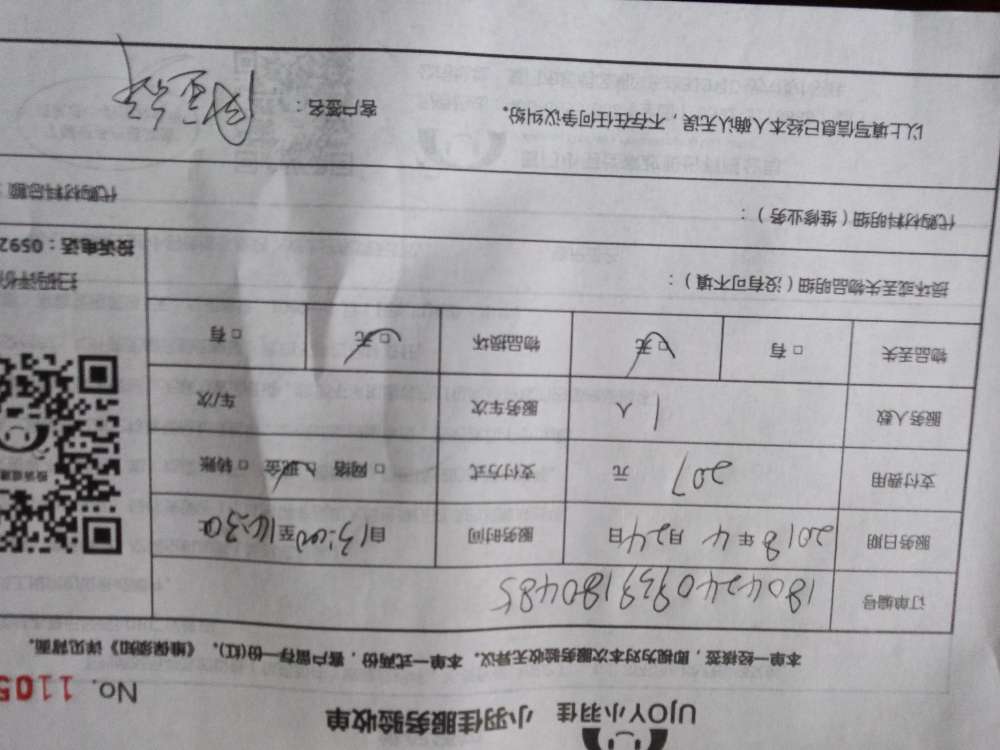 UJOY小羽佳 小羽佳服务验收单
No. 1105
本单一经核签，即视为对本次服务验收无异议。本单一式两份，客户留存一份(红)。《维保须知》详见背面。
订单编号 1804240939180485
服务日期 2018年4月24日 服务时间 自13:00至16:30
支付费用 207元 支付方式 □网络 □现金 □转账
服务人数 1人 服务车次 车/次
物品丢失 □有 □无 物品损坏 □无 □有
损坏或丢失物品明细（没有可不填）：
代购材料明细（维修业务）： 代购材料总额：
以上填写信息已经本人确认无误，不存在任何争议纠纷。 客户签名：
扫码评价
投诉电话：0592